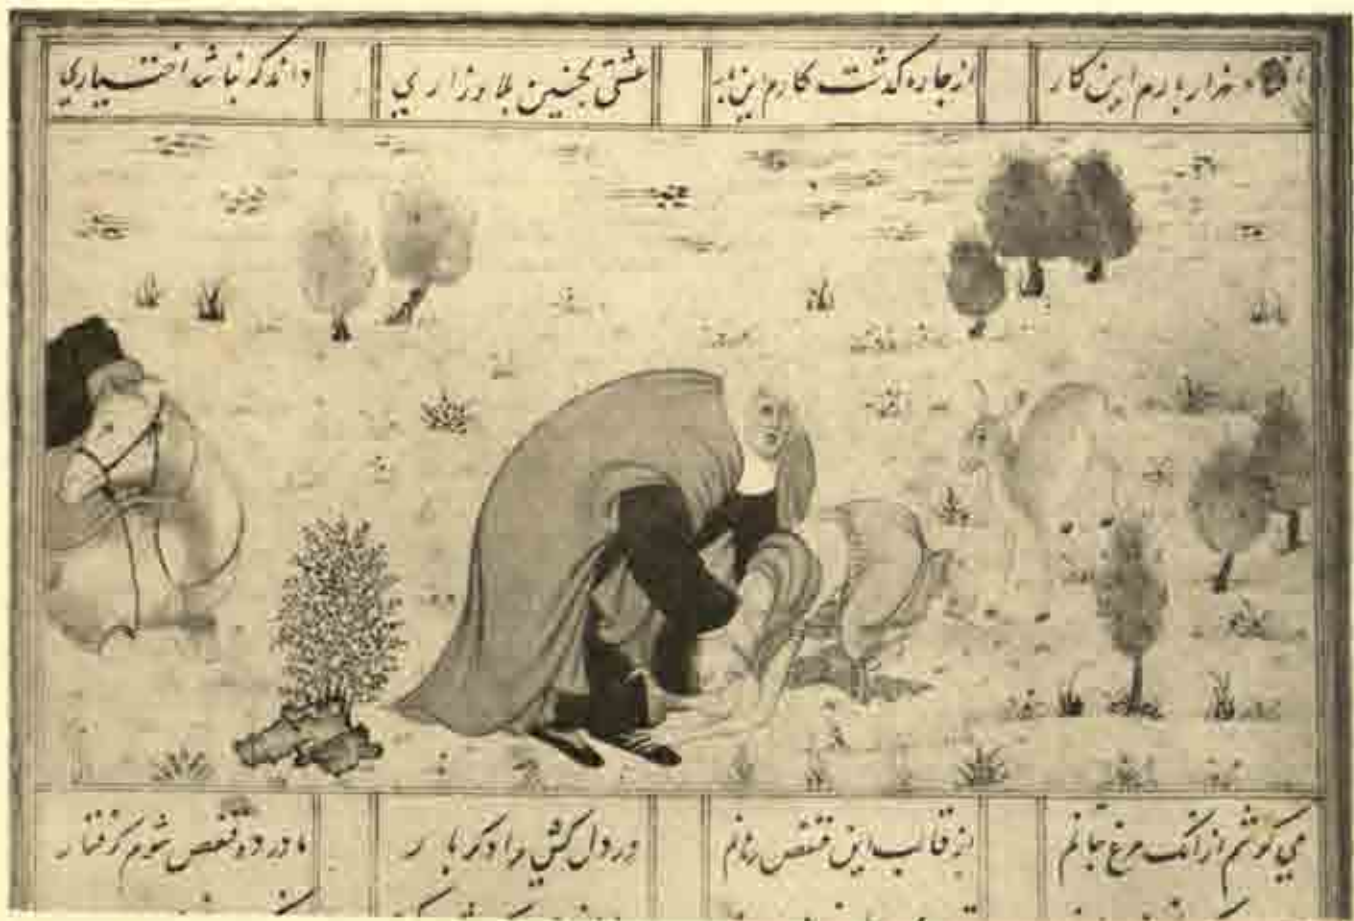 هزار بارم این کار از چاره گذشت کارم این بار عشقی بچنین بلا و زاری داند که نباشد اختیاری
می کوشم از انک مرغ جانم از قالب این قفص رهانم در دل کشی مرا دکر بار در دو قفص شوم کرفتار